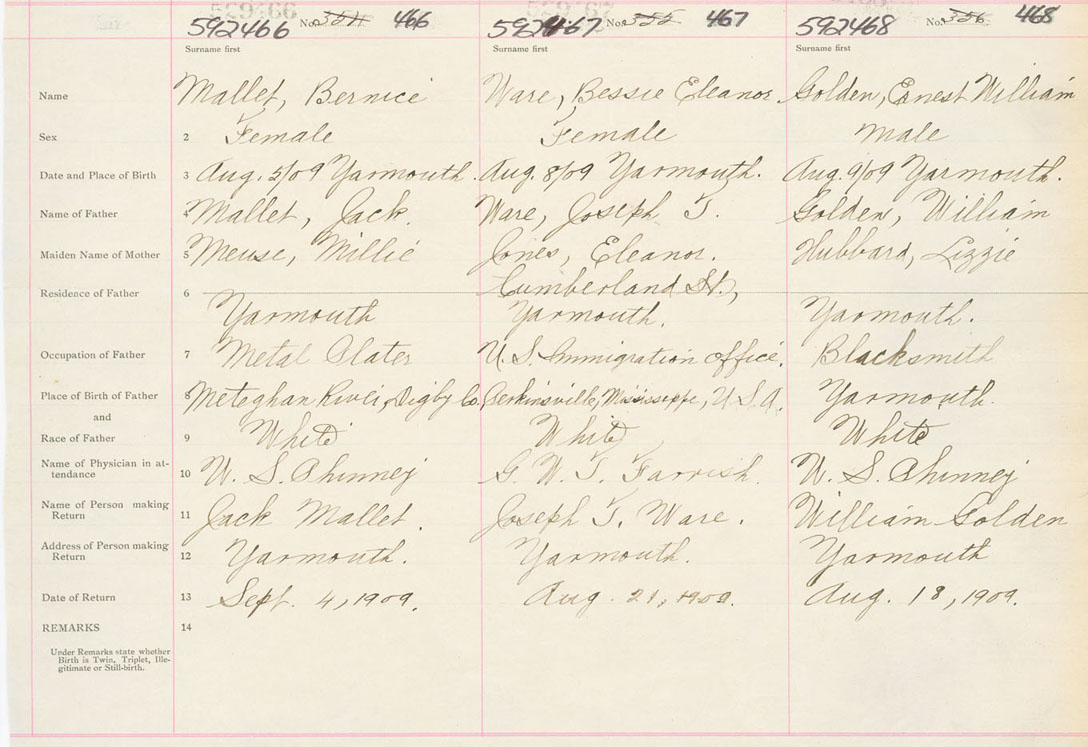 592466 No. 354 466 592467 No. 355 467 592468 No. 356 468
Surname first Surname first Surname first
Name Mallet, Bernice Ware, Bessie Eleanor Golden, Ernest William
Sex 2 Female Female Male
Date and Place of Birth 3 Aug. 5/09 Yarmouth. Aug. 8/09 Yarmouth. Aug. 9/09 Yarmouth.
Name of Father 4 Mallet, Jack. Ware, Joseph T. Golden, William
Maiden Name of Mother 5 Meuse, Millie Jones, Eleanor. Hubbard, Lizzie
Cumberland St.,
Residence of Father 6 Yarmouth Yarmouth. Yarmouth.
Occupation of Father 7 Metal Slater U.S. Immigration office. Blacksmith
Place of Birth of Father 8 Meteghan River, Digby Co. Perkinsville, Mississippi, U.S.A. Yarmouth.
and
Race of Father 9 White White White
Name of Physician in at-
tendance 10 W. S. Phinney G. W. T. Farrish. W. S. Phinney
Name of Person making
Return 11 Jack Mallet. Joseph T. Ware. William Golden
Address of Person making
Return 12 Yarmouth. Yarmouth. Yarmouth
Date of Return 13 Sept. 4, 1909. Aug. 21, 1909. Aug. 18, 1909.
REMARKS 14
Under Remarks state whether
Birth is Twin, Triplet, Ille-
gitimate or Still-birth.